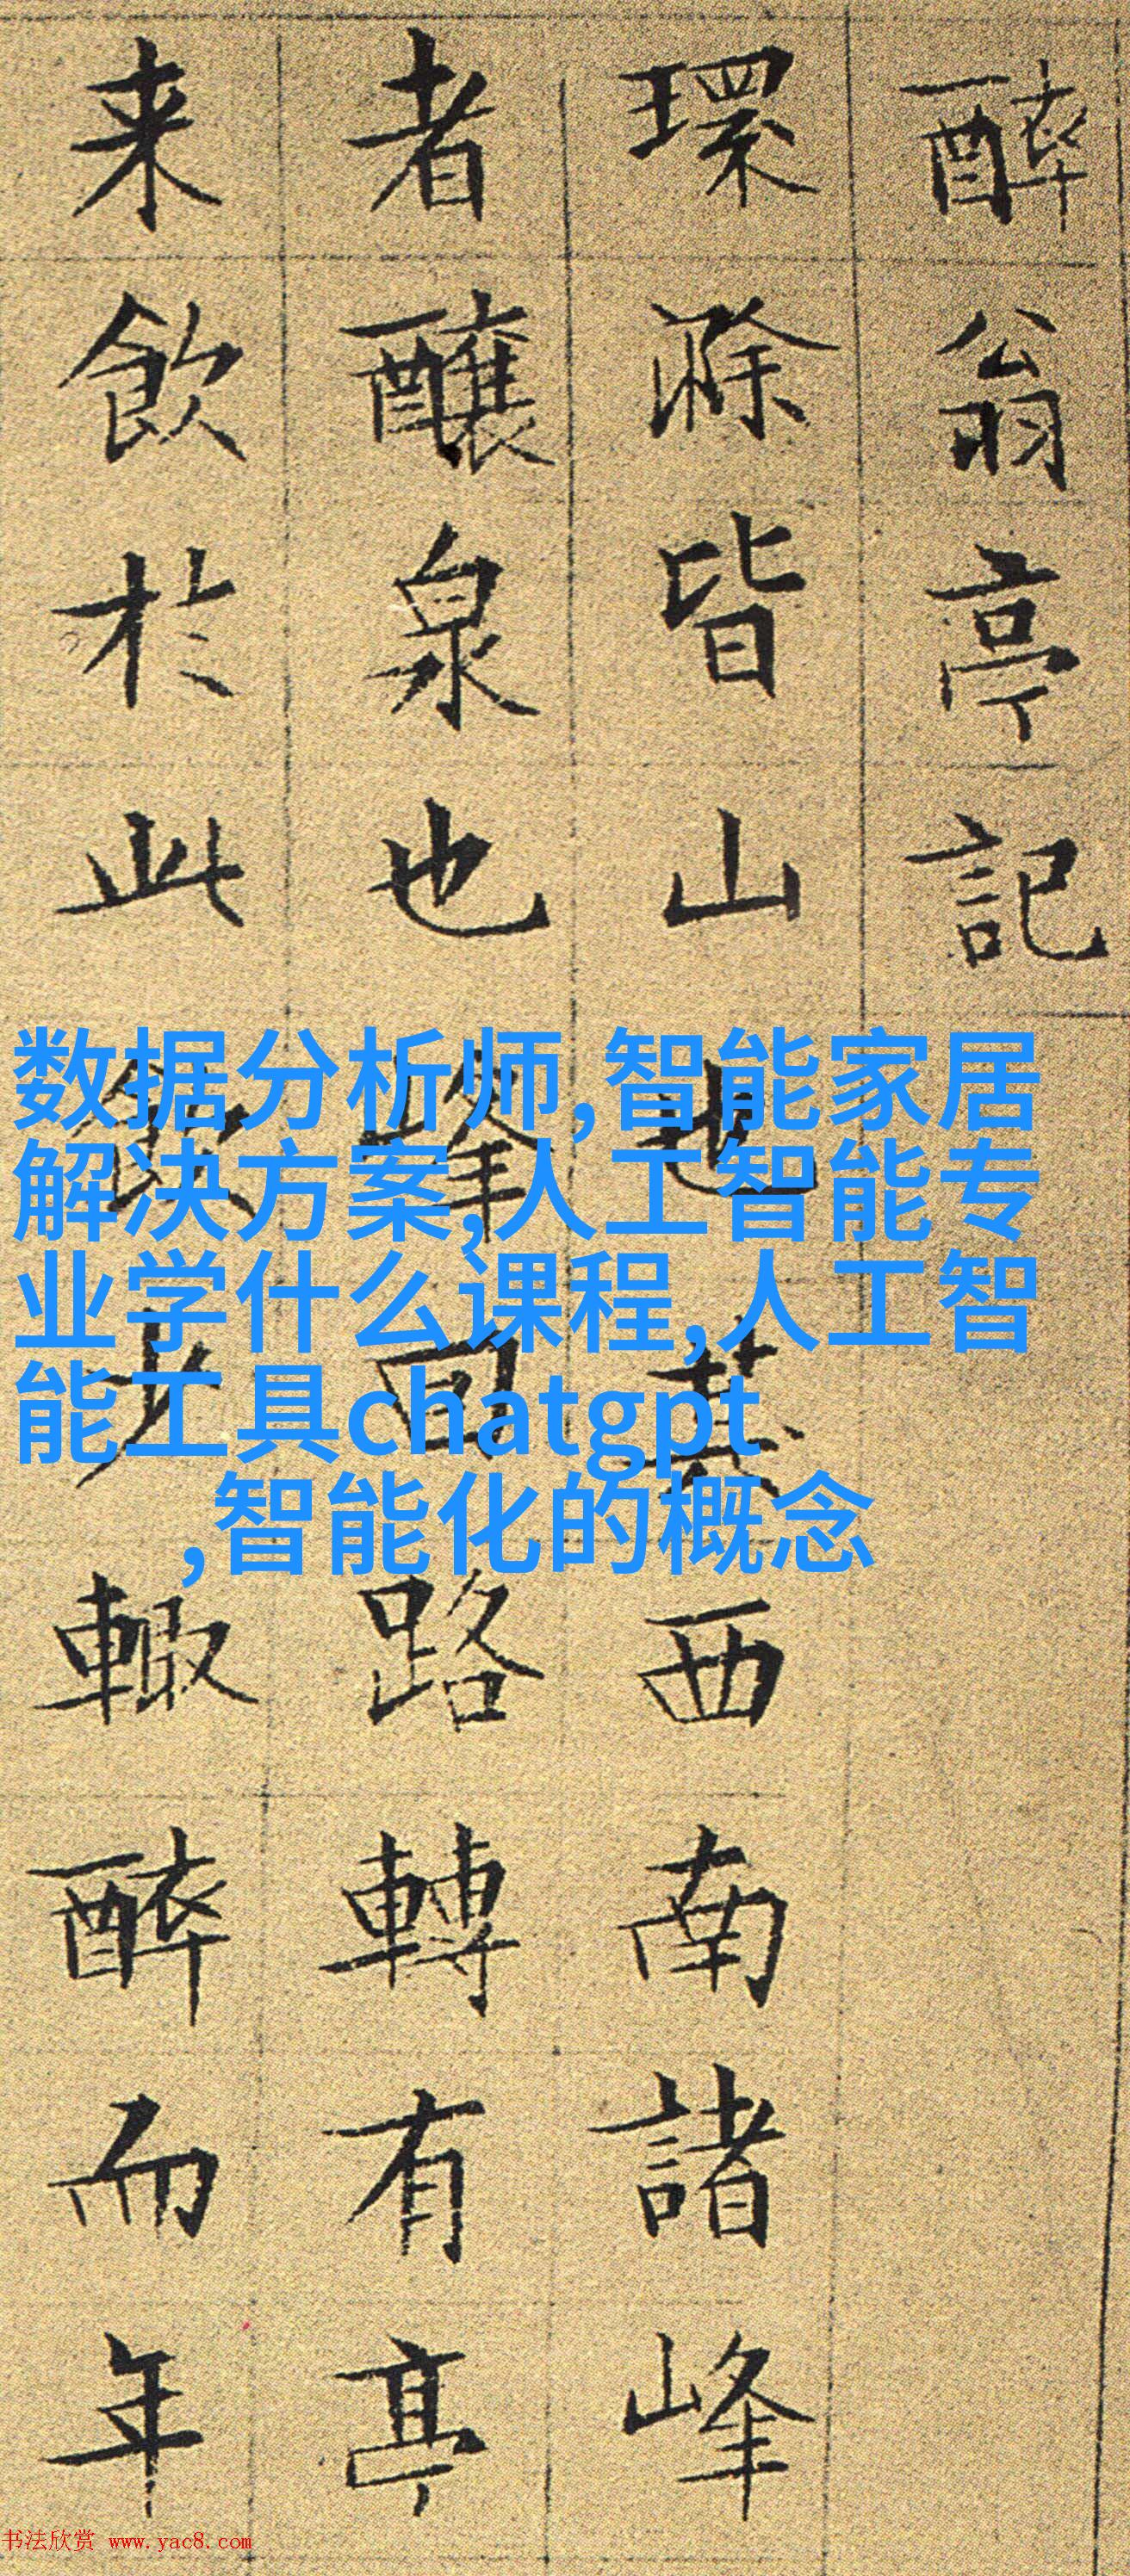 醉翁亭記
環滁皆山也其西南諸峰
者釀泉也峰回路轉有亭
来飲於此飲少輒醉而年
数据分析师,智能家居
解决方案,人工智能专
业学什么课程,人工智
能工具chatgpt
,智能化的概念
书法欣赏 www.yac8.com